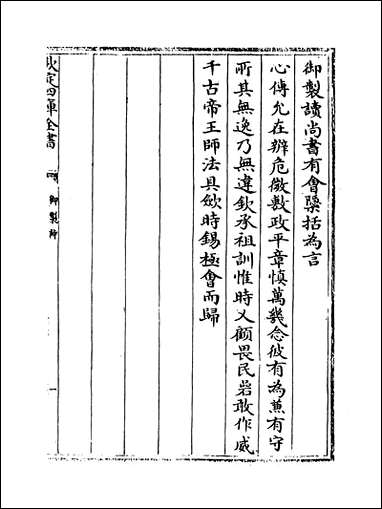 御製讀尚書有會檃括為言
心傳允在辨危微敷政平章慎萬幾念彼有為蕙有守
所其無逸乃無違欽承祖訓惟時乂顧畏民碞敢作威
千古帝王師法具歛時錫極會而歸
欽定四庫全書
御製詩
一